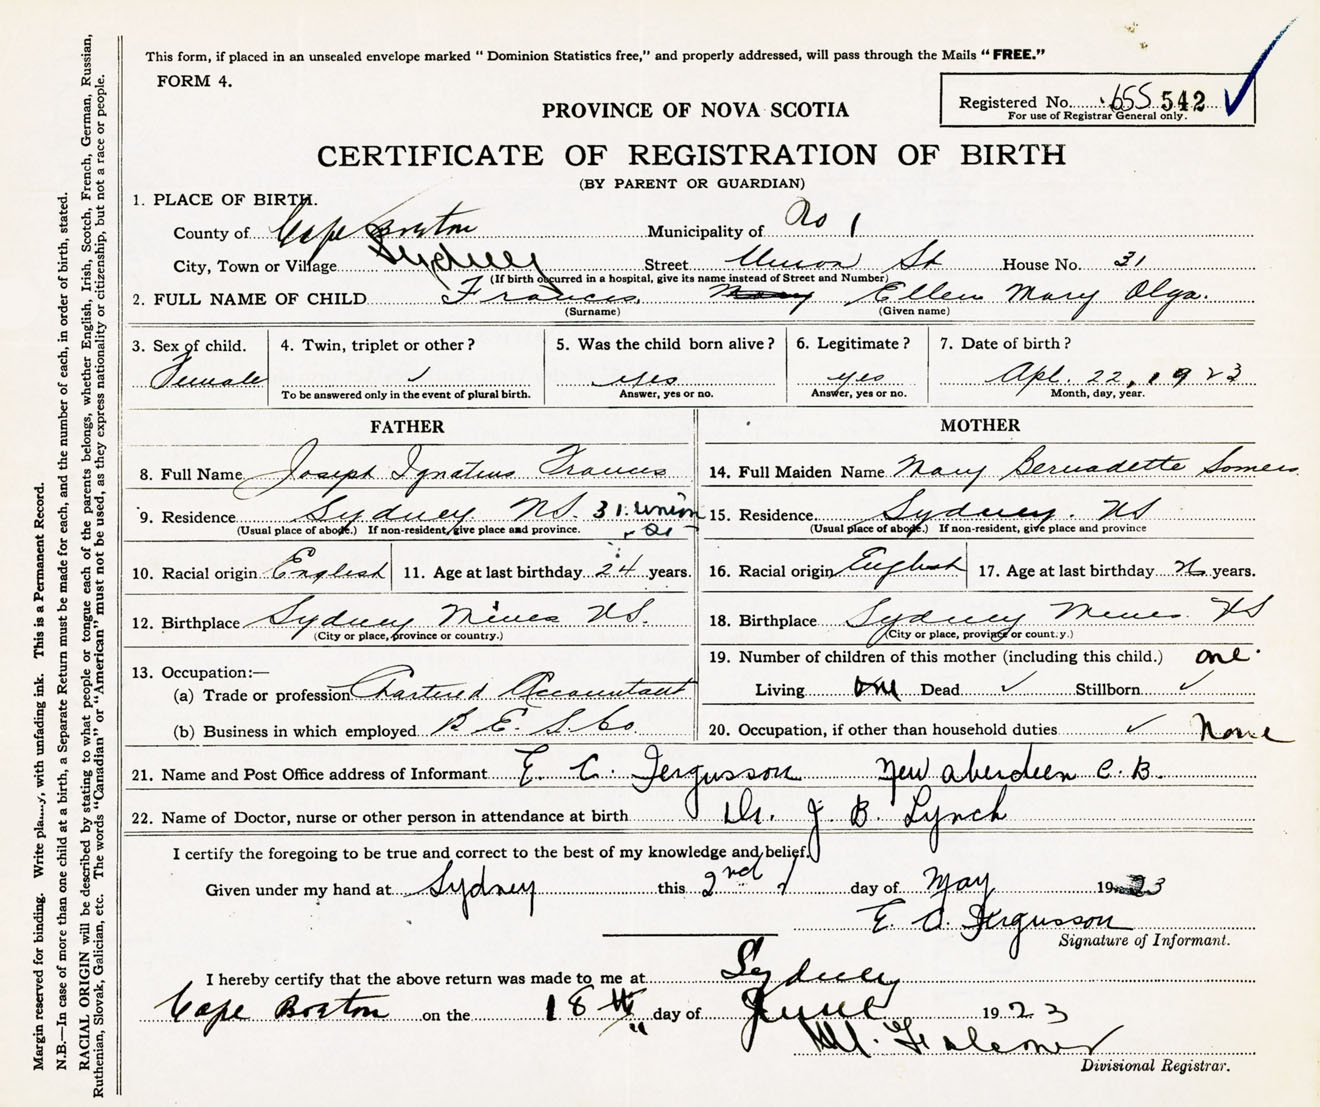 This form, if placed in an unsealed envelope marked “ Dominion Statistics free,” and properly addressed, will pass through the Mails “ FREE.”
FORM 4.
Registered No. 655 542
For use of Registrar General only.
PROVINCE OF NOVA SCOTIA
CERTIFICATE OF REGISTRATION OF BIRTH
(BY PARENT OR GUARDIAN)
1. PLACE OF BIRTH.
County of Cape Breton Municipality of No 1
City, Town or Village Sydney Street Union St House No. 31
(If birth occurred in a hospital, give its name instead of Street and Number)
2. FULL NAME OF CHILD Frances. Mary Ellen Mary Olga.
(Surname) (Given name)
3. Sex of child. 4. Twin, triplet or other ? 5. Was the child born alive ? 6. Legitimate ? 7. Date of birth ?
Female ✓ yes yes Apl. 22, 1923
To be answered only in the event of plural birth. Answer, yes or no. Answer, yes or no. Month, day, year.
FATHER MOTHER
8. Full Name Joseph Ignatius Frances 14. Full Maiden Name Mary Bernadette Somers
9. Residence Sydney NS. 31. Union St 15. Residence Sydney. NS
(Usual place of abode.) If non-resident, give place and province. (Usual place of abode.) If non-resident, give place and province
10. Racial origin English 11. Age at last birthday 24 years. 16. Racial origin English 17. Age at last birthday years.
12. Birthplace Sydney Mines NS. 18. Birthplace Sydney Mines NS
(City or place, province or country.) (City or place, province or count.y.)
13. Occupation:— 19. Number of children of this mother (including this child.) one
(a) Trade or profession Chartered Accountant Living one Dead ✓ Stillborn ✓
(b) Business in which employed B. E. S. Co. 20. Occupation, if other than household duties ✓ None
21. Name and Post Office address of Informant E. C. Fergusson New Aberdeen C. B.
22. Name of Doctor, nurse or other person in attendance at birth Dr. J. B. Lynch
I certify the foregoing to be true and correct to the best of my knowledge and belief.
Given under my hand at Sydney this 2nd day of May 1923
E. C. Fergusson
Signature of Informant.
I hereby certify that the above return was made to me at Sydney
Cape Breton on the 18th day of June 1923
Divisional Registrar.
Margin reserved for binding. Write pla....y, with unfading ink. This is a Permanent Record.
N.B.—In case of more than one child at a birth, a Separate Return must be made for each, and the number of each, in order of birth, stated.
RACIAL ORIGIN will be described by stating to what people or tongue each of the parents belongs, whether English, Irish, Scotch, French, German, Russian,
Ruthenian, Slovak, Galician, etc. The words “Canadian” or “American” must not be used, as they express nationality or citizenship, but not a race or people.